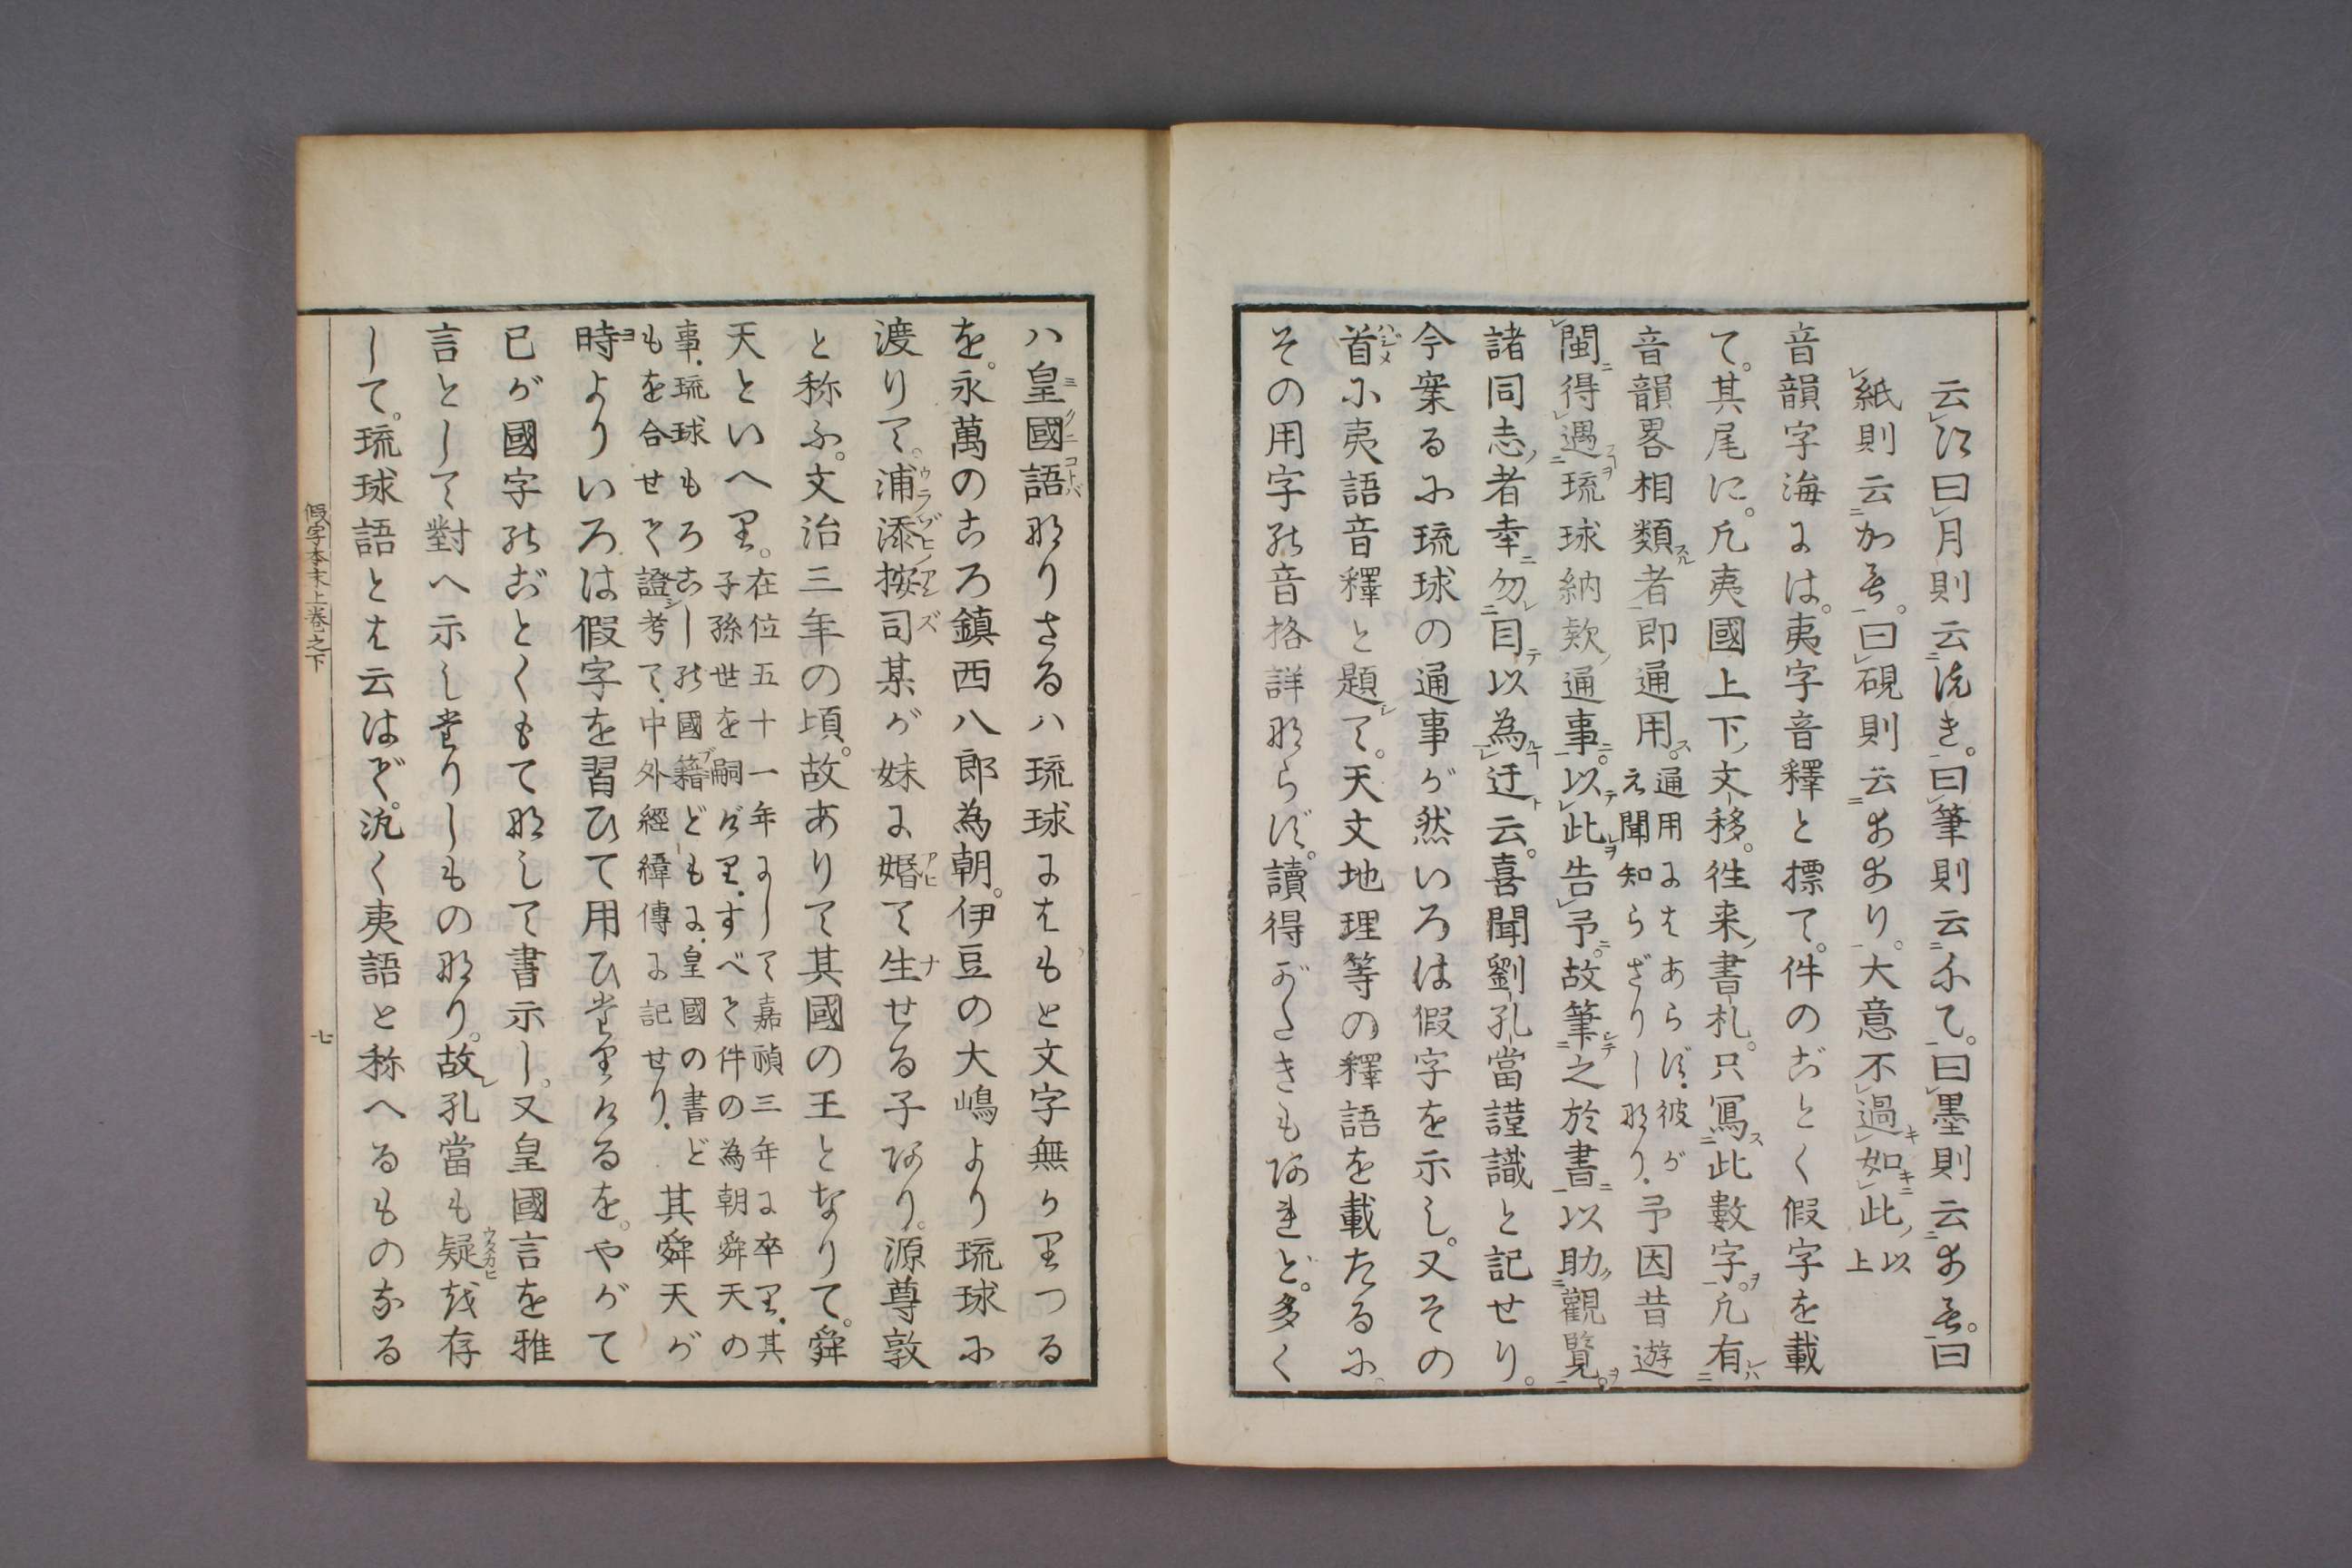 云江曰月則云洗き。曰筆則云ふて。曰墨則云すミ。曰
紙則云かミ。曰硯則云すゝり。大意不過如此以上
音韻字海には。夷字音釋と標て。件のごとく假字を載
て。其尾に。凡夷國上下文移。徃来書札。只寫此數字。凡有
音韻畧相類者即通用。通用にはあらず。彼が
え聞知らざりしなり。予因昔遊
閩得遇琉球納欵通事。以此告予。故筆之於書以助觀覧。
諸同志者幸勿目以為迂云。喜聞劉孔當謹識と記せり。
今案るに琉球の通事が然いろは假字を示し。又その
首に夷語音釋と題て。天文地理等の釋語を載たるに。
その用字の音格詳ならず。讀得がたきもあれど。多く
ハ皇國語なりさるハ琉球にはもと文字無かりつる
を。永萬のころ鎮西八郎為朝。伊豆の大嶋より琉球に
渡りて。浦添按司某が妹に婚て生せる子あり。源尊敦
と称ふ。文治三年の頃。故ありて其國の王となりて。舜
天といへり。在位五十一年にして嘉禎三年に卒り。其
子孫世を嗣げり。すべて件の為朝舜天の
事。琉球もろこしの國籍どもに。皇國の書ど
もを合せて證考て。中外經緯傳に記せり。其舜天が
時よりいろは假字を習ひて用ひ來りけるを。やがて
已が國字のごとくもてなして書示し。又皇國言を雅
言として對へ示し來りしものなり。故孔當も疑を存
して。琉球語とは云はで。汎く夷語と称へるものなる
假字本末上卷之下
七